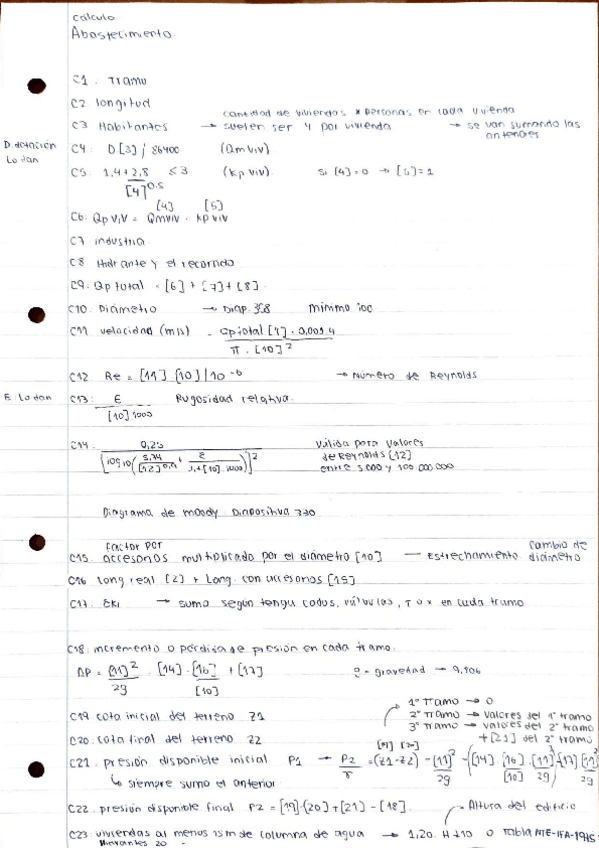 cálculo
Abastecimiento
C1. Tramo
C2 longitud
cantidad de viviendas × personas en cada vivienda
C3 Habitantes → suelen ser 4 por vivienda → se van sumando las
anteriores
D. dotación
Lo dan
C4: D [3] / 86400 (Qm viv)
C5: 1,4 + 2,8 / [4]^0.5 ≤ 3 (Kp viv) si [4]=0 → [5]=1
[4] [5]
C6: Qp viv = Qmviv · Kp viv
C7 industria
C8 Hidrante y el recorrido
C9: Qp total = [6] + [7] + [8]
C10. Diámetro → Diap. 368 mínimo 100
C11 velocidad (m/s) = Qp total [9] · 0,001 · 4 / π · [10]^2
C12 Re = [11] [10] / 10^-6 → Número de Reynolds
E: Lo dan
C13: ε / [10] 1000 Rugosidad relativa
C14: 0,25 / [log10( 5,74 / [12]^0,9 + ε / 3,7 · [10] · 1000 )]^2 Válida para valores
de Reynolds [12]
entre 5 000 y 100 000 000
Diagrama de moody Diapositiva 370
Factor por cambio de
C15. accesorios multiplicado por el diámetro [10] — Estrechamiento diámetro
C16 long real [2] + Long. con accesorios [15]
C17. Σki → sumo según tenga codos, válvulas, T o x en cada tramo
C18. incremento o pérdida de presión en cada tramo.
ΔP = [11]^2 / 2g · [14] · [16] / [10] + [17] g = gravedad → 9,806
1º Tramo → 0
2º Tramo → valores del 1º tramo
3º Tramo → valores del 2º tramo
+ [21] del 2º tramo
C19 cota inicial del terreno Z1
C20. cota final del terreno Z2
C21. presión disponible inicial P1 → P2 / γ = (Z1 - Z2) - [11]^2 / 2g - ([14] [16] / [10] [11]^2 / 2g) [17] [11]^2 / 2g
↳ siempre sumo el anterior
C22. presión disponible final P2 = [19] - [20] + [21] - [18]. Altura del edificio
C23 viviendas al menos 15m de columna de agua → 1,20 · H + 10 o Tabla NTE-IFA-1975
Hidrantes 20